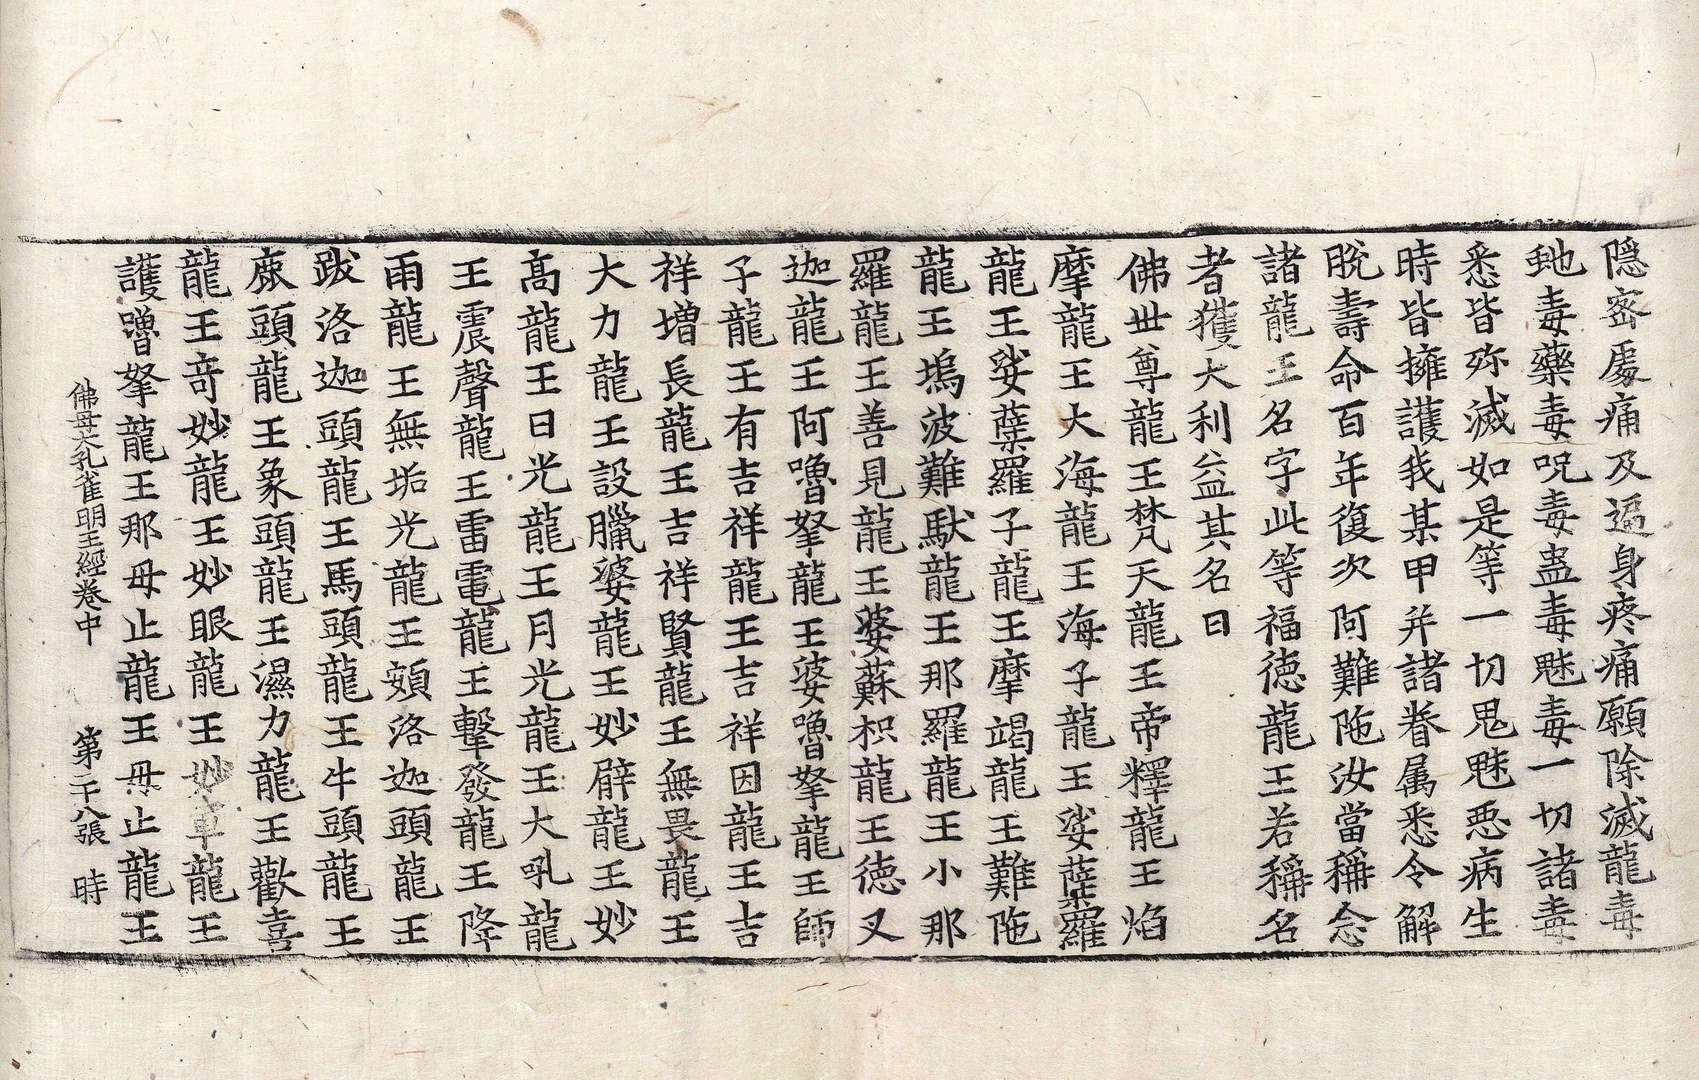 隱密處痛及遍身疼痛願除滅龍毒
虵毒藥毒呪毒蠱毒魅毒一切諸毒
悉皆弥滅如是等一切鬼魅惡病生
時皆擁護我某甲并諸眷属悉令解
脫壽命百年復次阿難陁汝當稱念
諸龍王名字此等福德龍王若稱名
者獲大利益其名曰
佛世尊龍王梵天龍王帝釋龍王焰
摩龍王大海龍王海子龍王娑蘖羅
龍王娑蘖羅子龍王摩竭龍王難陁
龍王塢波難馱龍王那羅龍王小那
羅龍王善見龍王婆蘇枳龍王德叉
迦龍王阿嚕拏龍王婆嚕拏龍王師
子龍王有吉祥龍王吉祥因龍王吉
祥增長龍王吉祥賢龍王無畏龍王
大力龍王設臘婆龍王妙臂龍王妙
高龍王日光龍王月光龍王大吼龍
王震聲龍王雷電龍王擊發龍王降
雨龍王無垢光龍王頞洛迦頭龍王
跋洛迦頭龍王馬頭龍王牛頭龍王
麁頭龍王象頭龍王濕力龍王歡喜
龍王奇妙龍王妙眼龍王妙軍龍王
護嚕拏龍王那母止龍王母止龍王
佛母大孔雀明王經卷中 第二十八張 時